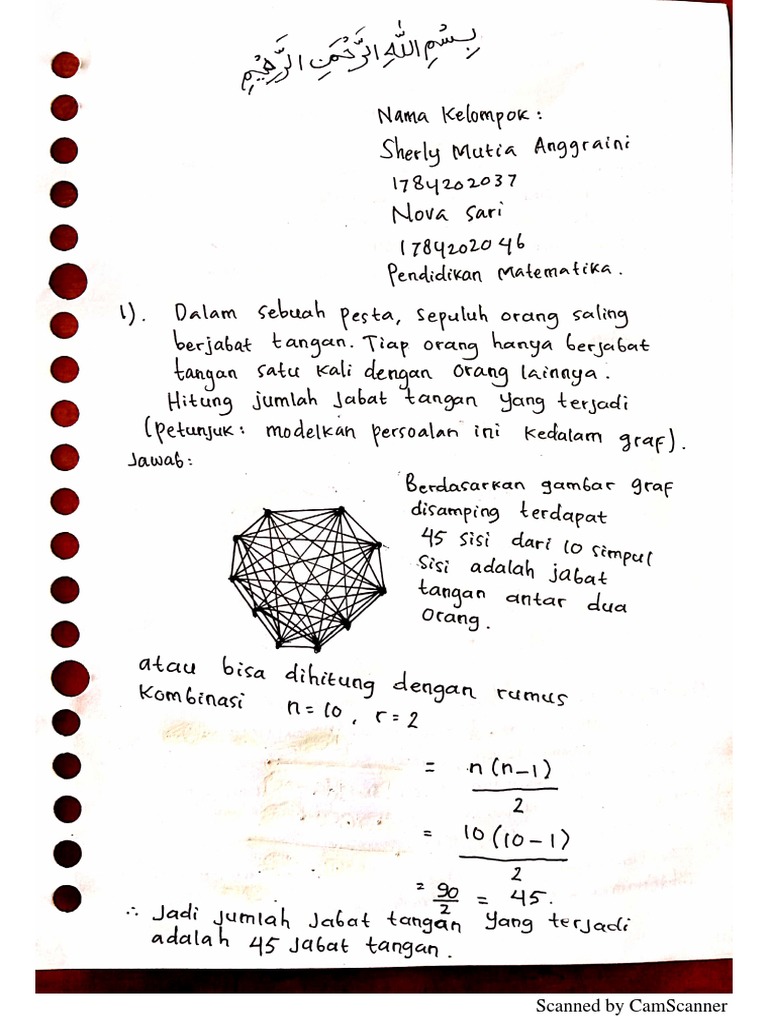 بِسْمِ اللهِ الرَّحْمَنِ الرَّحِيْمِ
Nama Kelompok :
Sherly Mutia Anggraini
1784202037
Nova Sari
1784202046
Pendidikan Matematika.
1). Dalam sebuah pesta, sepuluh orang saling
berjabat tangan. Tiap orang hanya berjabat
tangan satu kali dengan orang lainnya.
Hitung jumlah jabat tangan yang terjadi
(petunjuk : modelkan persoalan ini kedalam graf).
Jawab:
Berdasarkan gambar graf
disamping terdapat
45 sisi dari 10 simpul
Sisi adalah jabat
tangan antar dua
orang.
atau bisa dihitung dengan rumus
Kombinasi n=10, r=2
= n(n-1)
2
= 10(10-1)
2
= 90/2 = 45.
∴ Jadi jumlah Jabat tangan yang terjadi
adalah 45 Jabat tangan.
Scanned by CamScanner